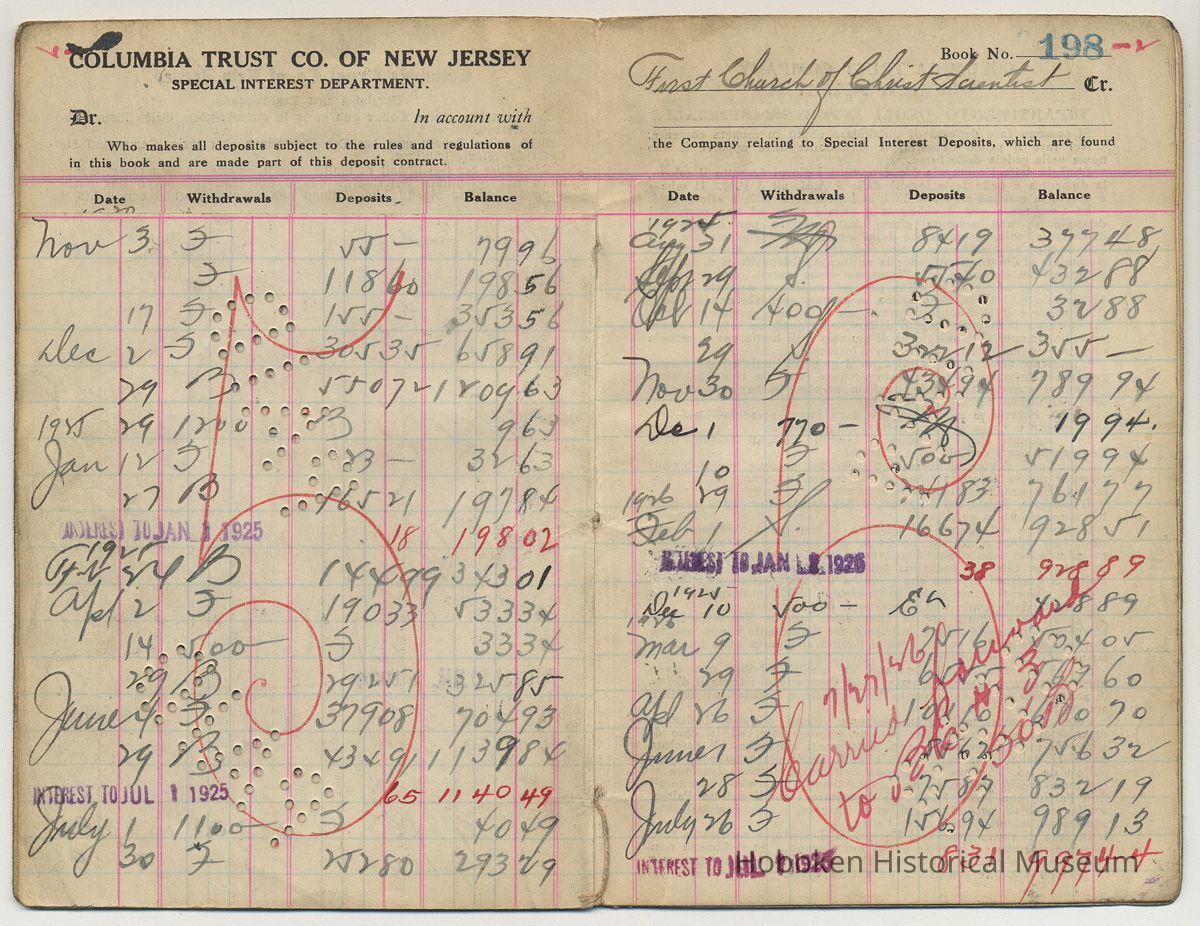 COLUMBIA TRUST CO. OF NEW JERSEY
SPECIAL INTEREST DEPARTMENT.
Dr. In account with
Who makes all deposits subject to the rules and regulations of
in this book and are made part of this deposit contract.
Date Withdrawals Deposits Balance
Nov 3 55 — 79 96
118 60 198 56
17 155 — 353 56
Dec 2 305 35 658 91
29 550 72 1209 63
1925 29 1200 9 63
Jan 12 23 — 32 63
27 165 21 197 84
INTEREST TO JAN 1 1925 18 198 02
1925
Feb 24 144 99 343 01
Apl 2 190 33 533 34
14 500 33 34
29 292 51 325 85
June 4 379 08 704 93
29 434 91 1139 84
INTEREST TO JUL 1 1925 65 1140 49
July 1 1100 40 49
30 252 80 293 29
Book No. 198
First Church of Christ Scientist Cr.
the Company relating to Special Interest Deposits, which are found
Date Withdrawals Deposits Balance
1925
Aug 31 84 19 377 48
29 55 40 432 88
14 400 — 32 88
29 322 12 355 —
Nov 30 434 94 789 94
Dec 1 770 — 19 94
10 500 519 94
1926 29 241 83 761 77
Feb 1 166 74 928 51
INTEREST TO JAN 1926 38 928 89
1925
Dec 10 500 — 428 89
1926
Mar 9 75 16 504 05
29 567 60
Apl 26 70
June 1 756 32
28 75 87 832 19
July 26 156 94 989 13
INTEREST TO JUL 1926 8 31 997 44
7/27/26
Carried forward
to
Hoboken Historical Museum